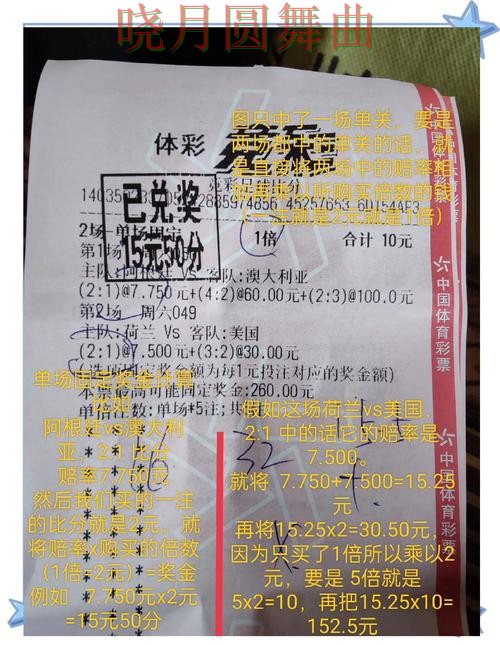 晓月圆舞曲
图只中了一场单关，要是
两场都中的单关的话，就
是直接将两场中的赔率相
（一注就是2元就是1倍）
体彩
竞彩足球比分
已兑奖
15元50分
2场-单场固定
1倍
合计 10元
第1场
主队:阿根廷 Vs 客队:澳大利亚
(2:1)@7.750元+(4:2)@60.00元+(2:3)@100.0元
第2场 周六049
主队:荷兰 Vs 客队:美国
(2:1)@7.500元+(3:2)@30.00元
(选项固定奖金额为每1元投注对应的奖金额)
本票最高可能固定奖金:260.00元
单倍注数:单场*5注;共
单场固定奖金计算
比如
阿根廷vs澳大利
亚，2:1 比分
赔率7.750元
然后我们买的一注
的比分就是2元，就
将赔率x购买的倍数
（1倍=2元）=奖金
例如 7.750元x2元
=15元50分
假如这场荷兰vs美国，
2:1 中的话它的赔率是
7.500。
就将 7.750+7.500=15.25
元
再将15.25x2=30.50元，
因为只买了1倍所以乘以2
元，要是 5倍就是
5x2=10，再把15.25x10=
152.5元
32
中国体育彩票
中国体育彩票
中国体育彩票